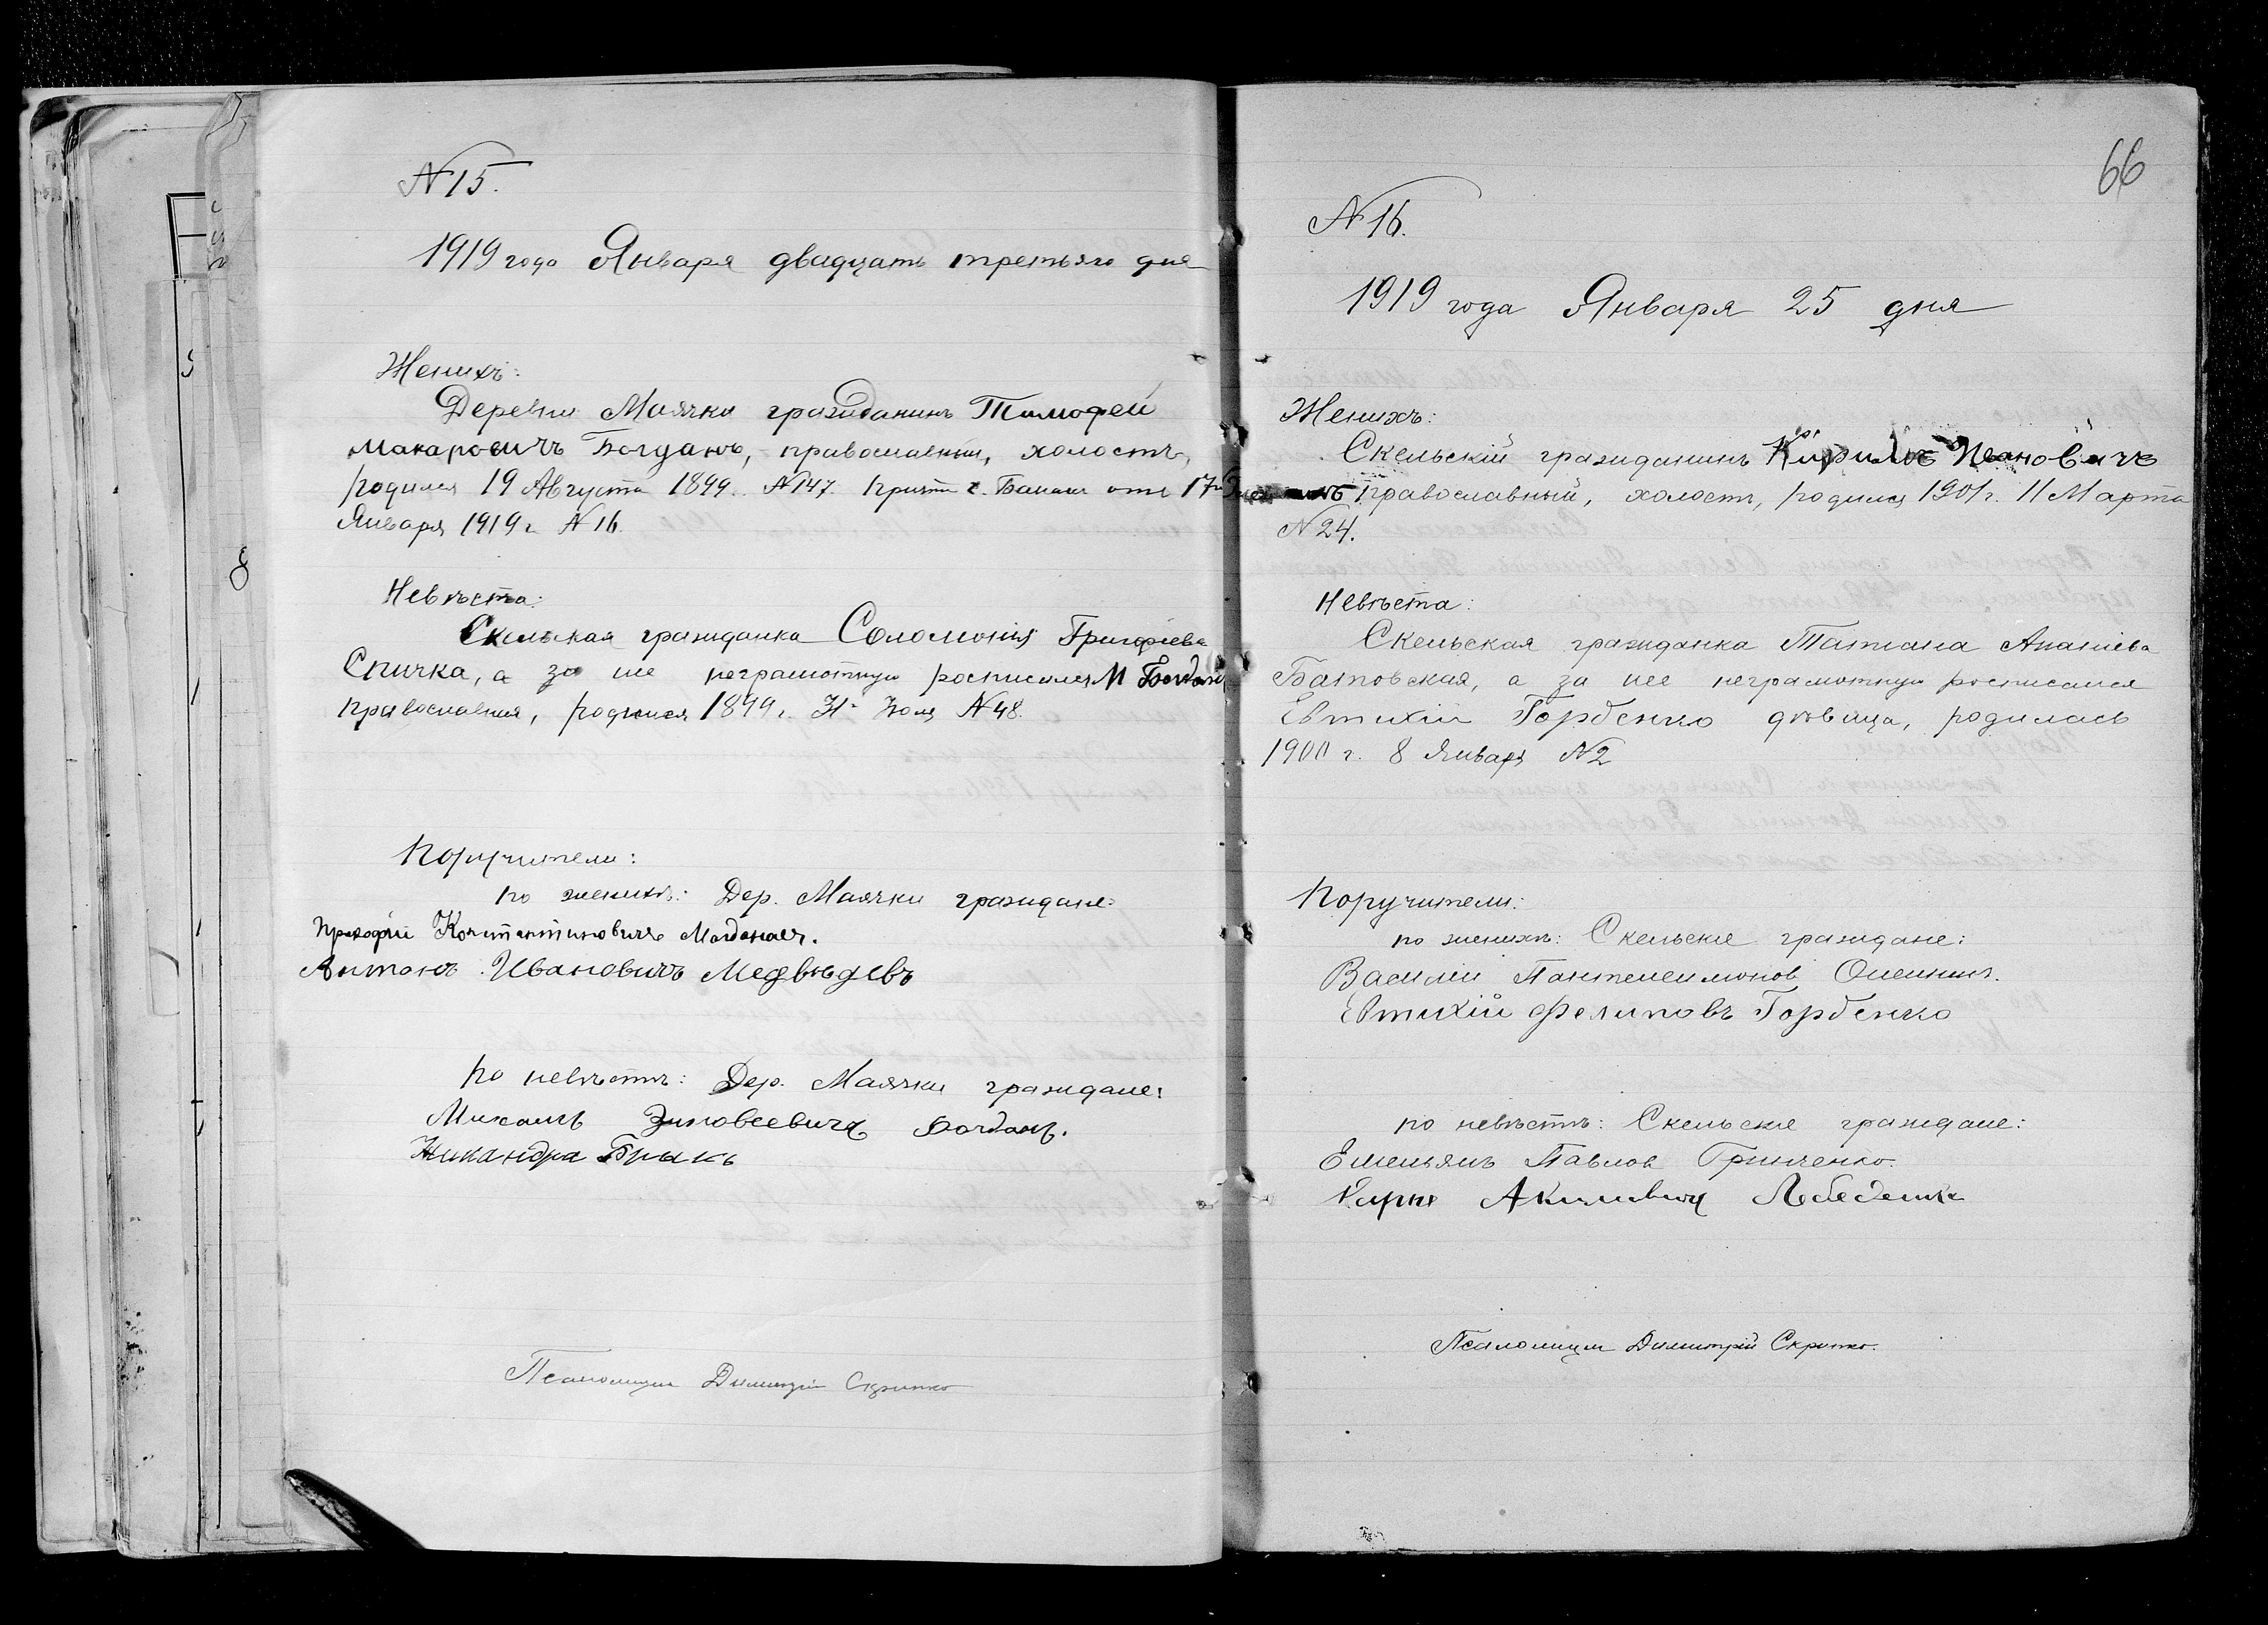 N 15.
1919 года Января двадцать третьяго дня
Женихъ:
Деревни Маячки гражданинъ Тимофей
Макаровичъ Богданъ, православный, холостъ,
родился 19 Августа 1899 г. N 147. Причта с. от 17го
Января 1919 г. N 16.
Невѣста:
Скельская гражданка Соломонія Григорієва
Спичка, а за нее неграмотную росписался М Богданъ
православная, родилася 1899 г. N 48.
Поручители:
по женихѣ: Дер. Маячки граждане:
Прокофій Константиновичъ
Антонъ Ивановичъ Медвѣдевъ
по невѣстѣ: Дер. Маячки граждане:
Михаилъ Зиновеевичъ Богданъ.
Никандра Брыкъ
Псаломщик Димитрій Скрипко
66
N 16.
1919 года Января 25 дня
Женихъ:
Скельскій гражданинъ Кирилъ Ивановичъ
православный, холостъ, родился 1901 г. 11 Марта
N 24.
Невѣста:
Скельская гражданка Татиана Ананіева
Батовская, а за нее неграмотную росписался
Евтихій Горбенко дѣвица, родилась
1900 г. 8 Января N 2
Поручители:
по женихѣ: Скельские граждане:
Василій Пантелеимонов
Евтихій Фелиповъ Горбенко
по невѣстѣ: Скельские граждане:
Емельянъ Павлов Гринченко.
Акимович Лебеденко
Псаломщик Димитрій Скрипко.